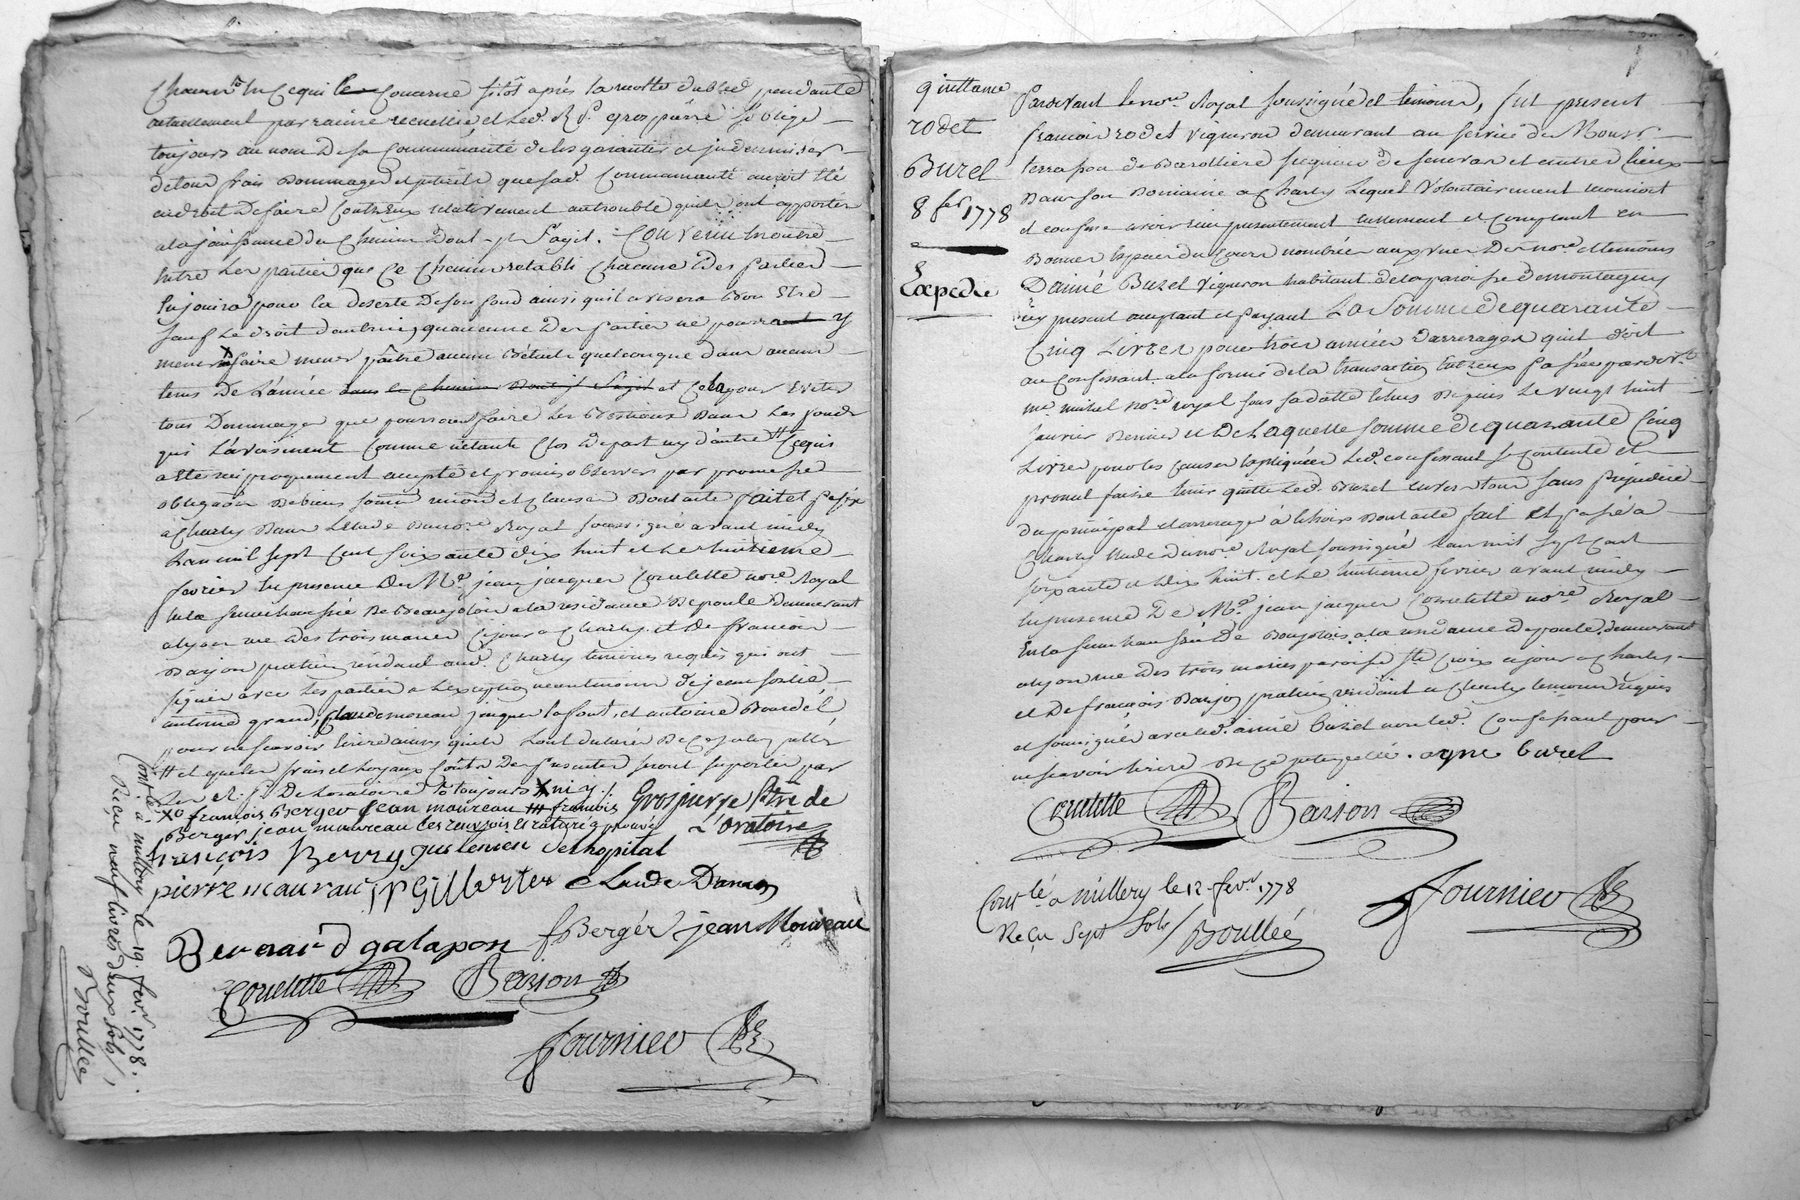 Chacun en ce qui le concerne sitôt après la récolte du bled pendante
actuellement par racine recueillie et led. R. P. grospierre s'oblige
toujours au nom De sa Communauté de les garantir et indemniser
de tous frais Dommages et interets que lad. Communauté auroit été
en droit De faire Contr'eux relativement au trouble quils ont apporter
a la jouissance du chemin Dont il s'agit. Convenu en outre
entre les parties que ce chemin retabli chacune Des parties
En jouira pour la deserte De son fond ainsi quil avisera bon Etre
sauf le droit d'autrui, qu'aucune Des parties ne pourra y
mener ny faire mener paître aucun Bétail quelconque dans aucun
tems De L'année dans le chemin Dont il s'agit et cela pour Eviter
tous Dommages que pourroient faire les Bestiaux Dans les fonds
qui L'avoisinent comme n'étant clos De part ny d'autre # ce qui
a été réciproquement accepté et promis observer par promesse
obligaon De biens soumon renon et clauses Dont acte fait et passé
a Charly Dans L'etude Du nore Royal soussigné avant midy
L'an mil sept Cent soixante dix huit et le huitieme
fevrier En presence De Me jean jacques Coulette nore Royal
en la senechaussée De Beaujolois a la residance De poule Demeurant
a lyon rue Des trois maries ce jour a Charly et De françois
Basson praticien residant aud. Charly temoins requis qui ont
signé avec les parties a L'exception neantmoins De jean
antoine grand, claude moreau jacques lafont, et antoine Bourdel
pour ne scavoir Ecrire ainsi quils l'ont Déclaré De ce
# et que les frais et loyaux Coûts Des presentes seront supportés par
Led. R. P. De L'oratoire toujours X ni y
Xo françois Berger jean maureau ### françois
Berger, jean maureau les renvois et ratures approuvés
Grospierre Ptre de
L'oratoire
françois Berry guilemen Delhopital
pierre maurau JP Gillerter Claude Damas
Bernard galapon fBergér jean Moureau
Coulette Basson
fournier
Contlé a millery le 19. fevr. 1778.
Reçu neuf livres deux sols /
Boullée
quittance
rodet
Burel
8 fer 1778
Expedie
Pardevant le nore Royal soussigné et temoins, fut present
françois rodet vigneron demeurant au service de Monsr.
terrasson de Barolliere seigneur de senevas et autres lieux
Dans son Domaine a Charly Lequel Volontairement reconnoit
et confesse avoir reçu presentement reellement et comptant en
bonnes Especes du cours nombrées aux vues Des nore et temoins
D'aimé Burel vigneron habitant de la paroisse de montagny
icy present comptant et payant La Somme de quarante
Cinq Livres pour trois années D'arrerages quil doit
au confessant a la forme de la transaction Entr'eux passée pardevt
me michel nore royal sous sa datte Echus Depuis le vingt huit
Janvier Dernier et De Laquelle somme de quarante Cinq
Livres pour les causes Expliquées led. confessant se contente et
promet faire tenir quitte led. Burel envers tous sans préjudice
du principal et arrerages à Echoir Dont acte fait et passé a
Charly Etude du nore Royal soussigné L'an mil sept cent
soixante et dix huit et le huitieme fevrier avant midy
En presence De Me jean jacques Coulette nore Royal
En la senechaussée De Beaujolois a la residance De poule, demeurant
a lyon rue Des trois maries paroisse Ste Croix ce jour a Charly
et De françois Basson praticien residant a Charly temoins requis
et soussignés avec led. aimé burel non led. Confessant pour
ne scavoir Ecrire De ce interpellé. ayme burel
Coulette Basson
Contlé a millery le 12 fevr 1778
Reçu Sept sols / Boullée
fournier